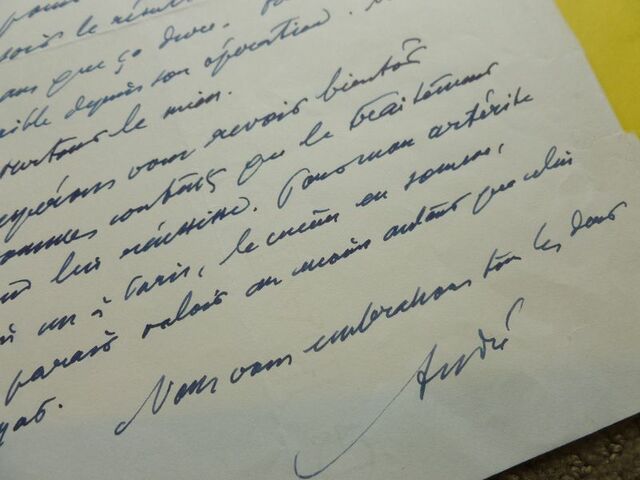 pour
le résult
ans que ça dure.
depuis son opération.
surtout le mien.
espérons vous revoir bientôt
sommes contents que le traitement
lui réussisse. Pour mon artérite
un à Paris, le même en somme,
parait valoir au moins autant que celui
Nous vous embrassons tous les deux
André